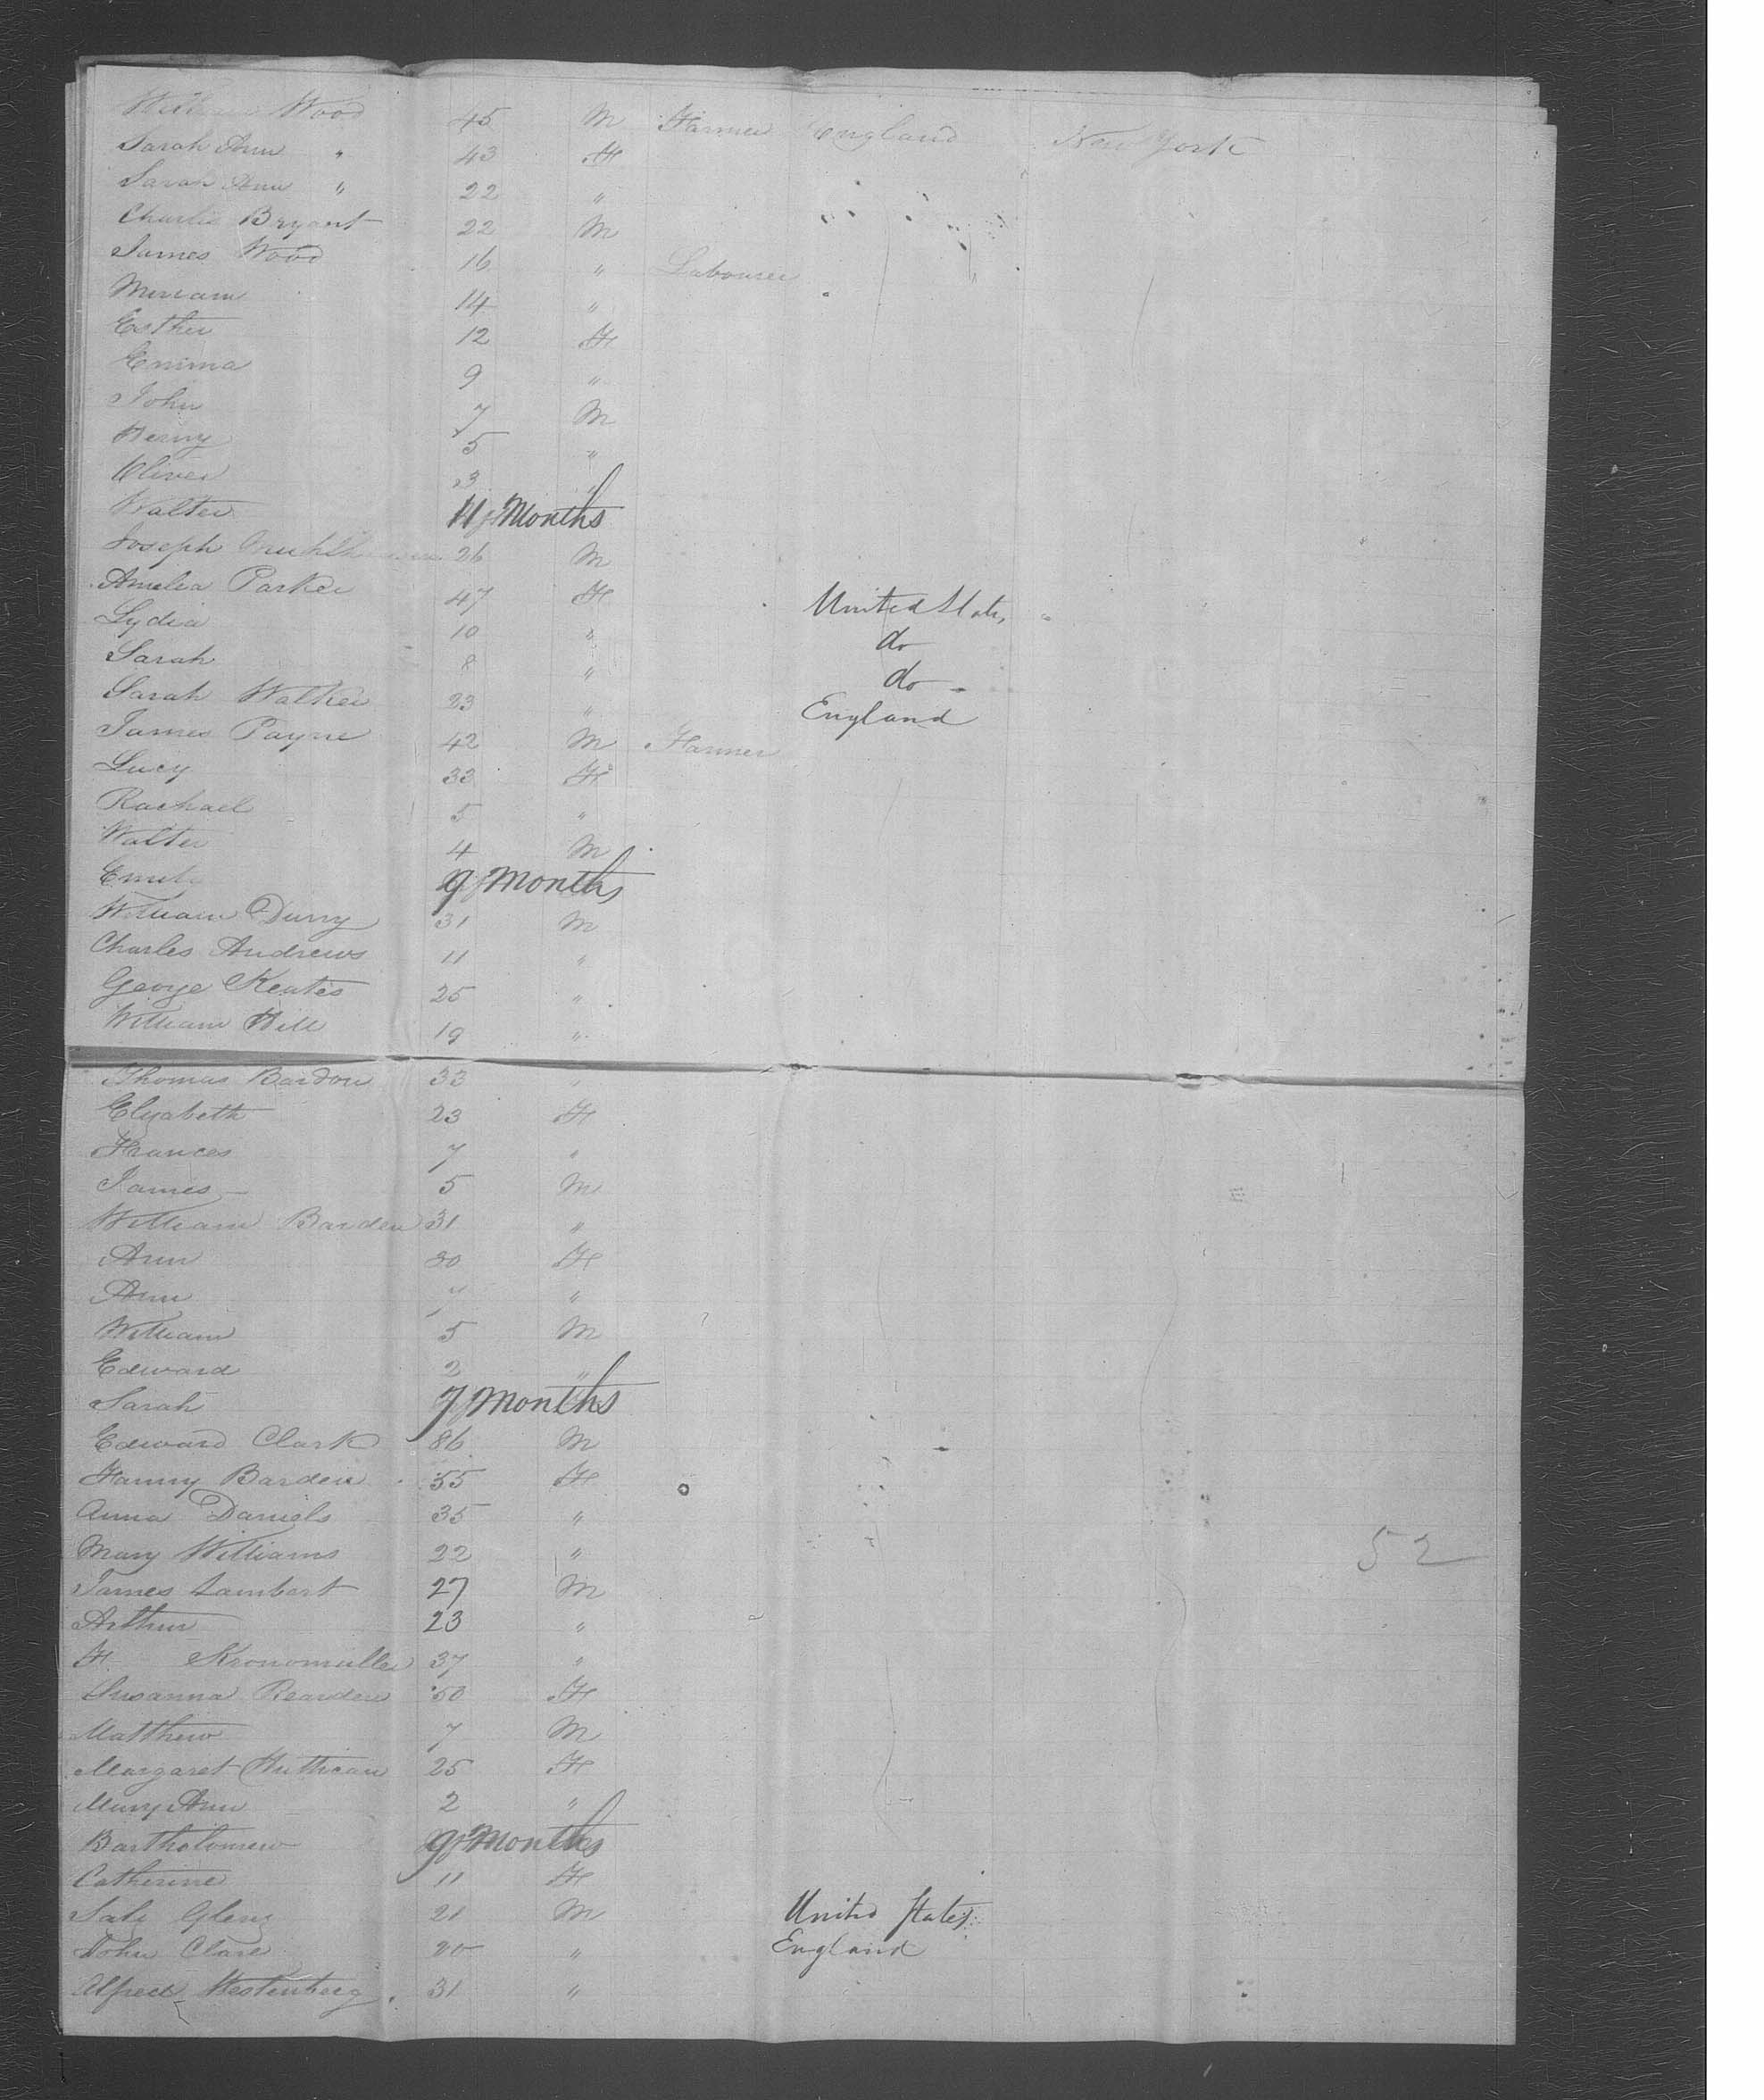 William Wood 45 M Farmer England New York
Sarah Ann " 43 F
Sarah Ann " 22 "
Charlie Bryant 22 M
James Wood 16 " Labourer
Miriam 14 "
Esther 12 F
Emma 9 "
John 7 M
Henry 5 "
Oliver 3 "
Walter 11 Months
Joseph 26 M
Amelia Parker 47 F United States
Lydia 10 " do
Sarah 8 " do
Sarah Walker 23 " England
James Payne 42 M Farmer
Lucy 33 F
Rachael 5 "
Walter 4 M
Emily 9 Months
William Durry 31 M
Charles Andrews 11 "
George Keates 25 "
William Hill 19 "
Thomas Bardon 33 "
Elizabeth 23 F
Frances 7 "
James 5 M
William Barden 31 "
Ann 30 F
Ann 7 "
William 5 M
Edward 2 "
Sarah 7 Months
Edward Clark 86 M
Fanny Barden 55 F
Anna Daniels 35 "
Mary Williams 22 "
52
James Lambert 27 M
Arthur 23 "
F. 37 "
Susanna Rearden 50 F
Matthew 7 M
Margaret 25 F
Mary Ann 2 "
Bartholomew 9 Months
Catherine 11 F
21 M United States
John Clare 20 " England
Alfred Westenberg 31 "